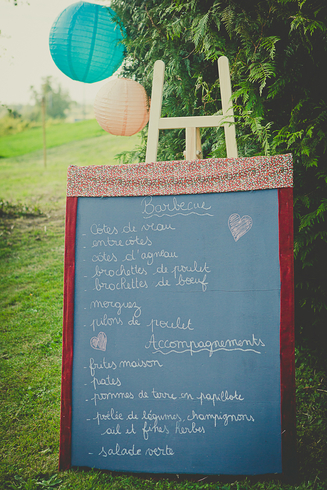 Barbecue
- Côtes de veau
- entrecôtes
- côtes d'agneau
- brochettes de poulet
- brochettes de bœuf
- morguez
- pilons de poulet
Accompagnements
- frites maison
- pates
- pommes de terre en papillote
- poêlée de légumes, champignons
ail et fines herbes
- salade verte